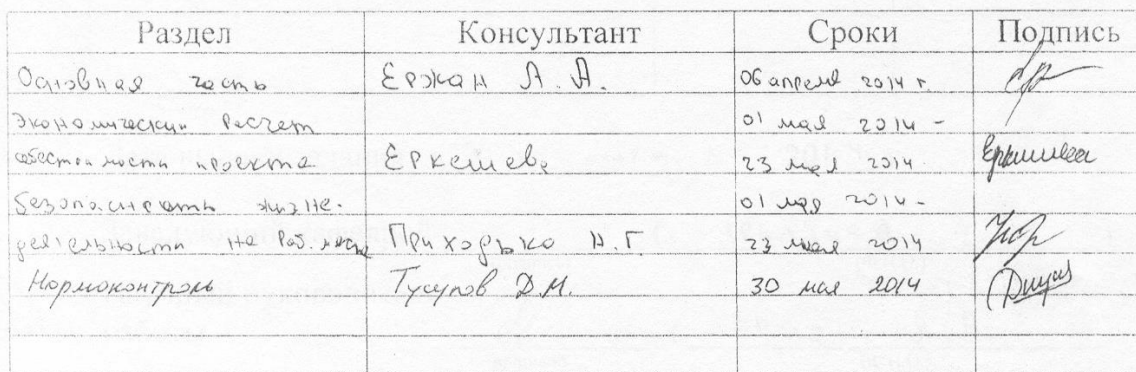 Раздел Консультант Сроки Подпись
Основная часть Ержан А. А. 06 апреля 2014 г.
Экономический расчет 01 мая 2014 -
себестоимости проекта Еркешева 23 мая 2014.
Безопасность жизне- 01 мая 2014 -
деятельности на раб. месте Приходько Н.Г 23 мая 2014
Нормоконтроль Тусупов Д.М. 30 мая 2014